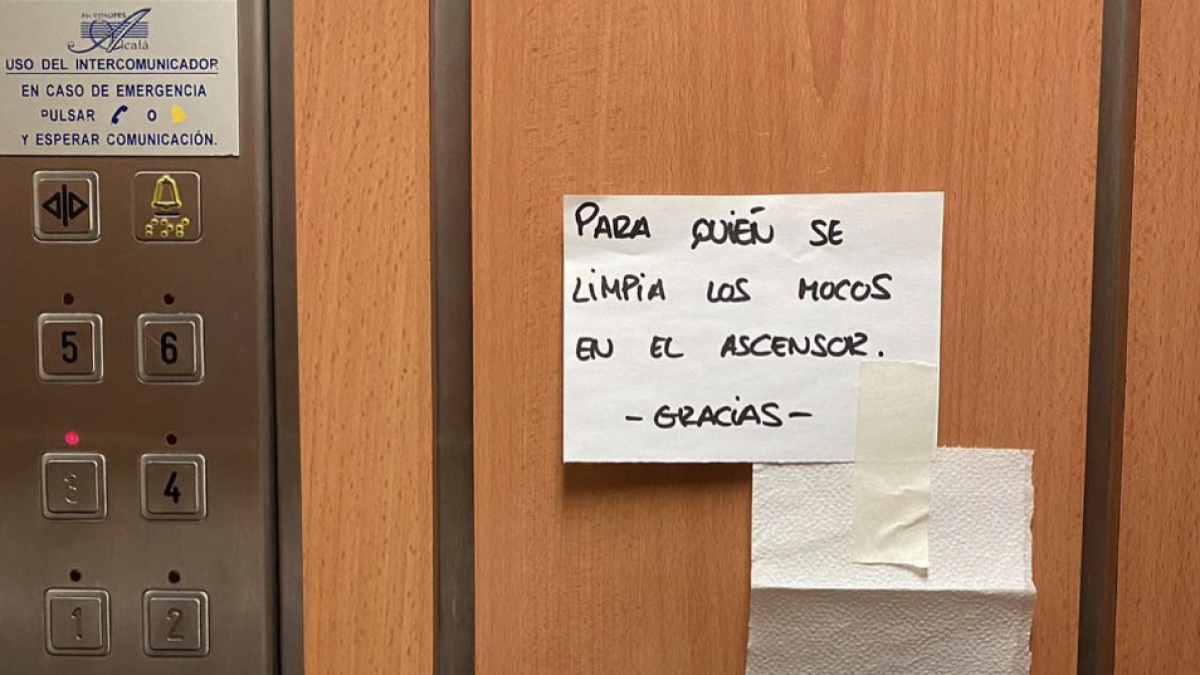 Alcalá
USO DEL INTERCOMUNICADOR
EN CASO DE EMERGENCIA
PULSAR O
Y ESPERAR COMUNICACIÓN.
5 6
3 4
1 2
PARA QUIÉN SE
LIMPIA LOS MOCOS
EN EL ASCENSOR.
- GRACIAS -